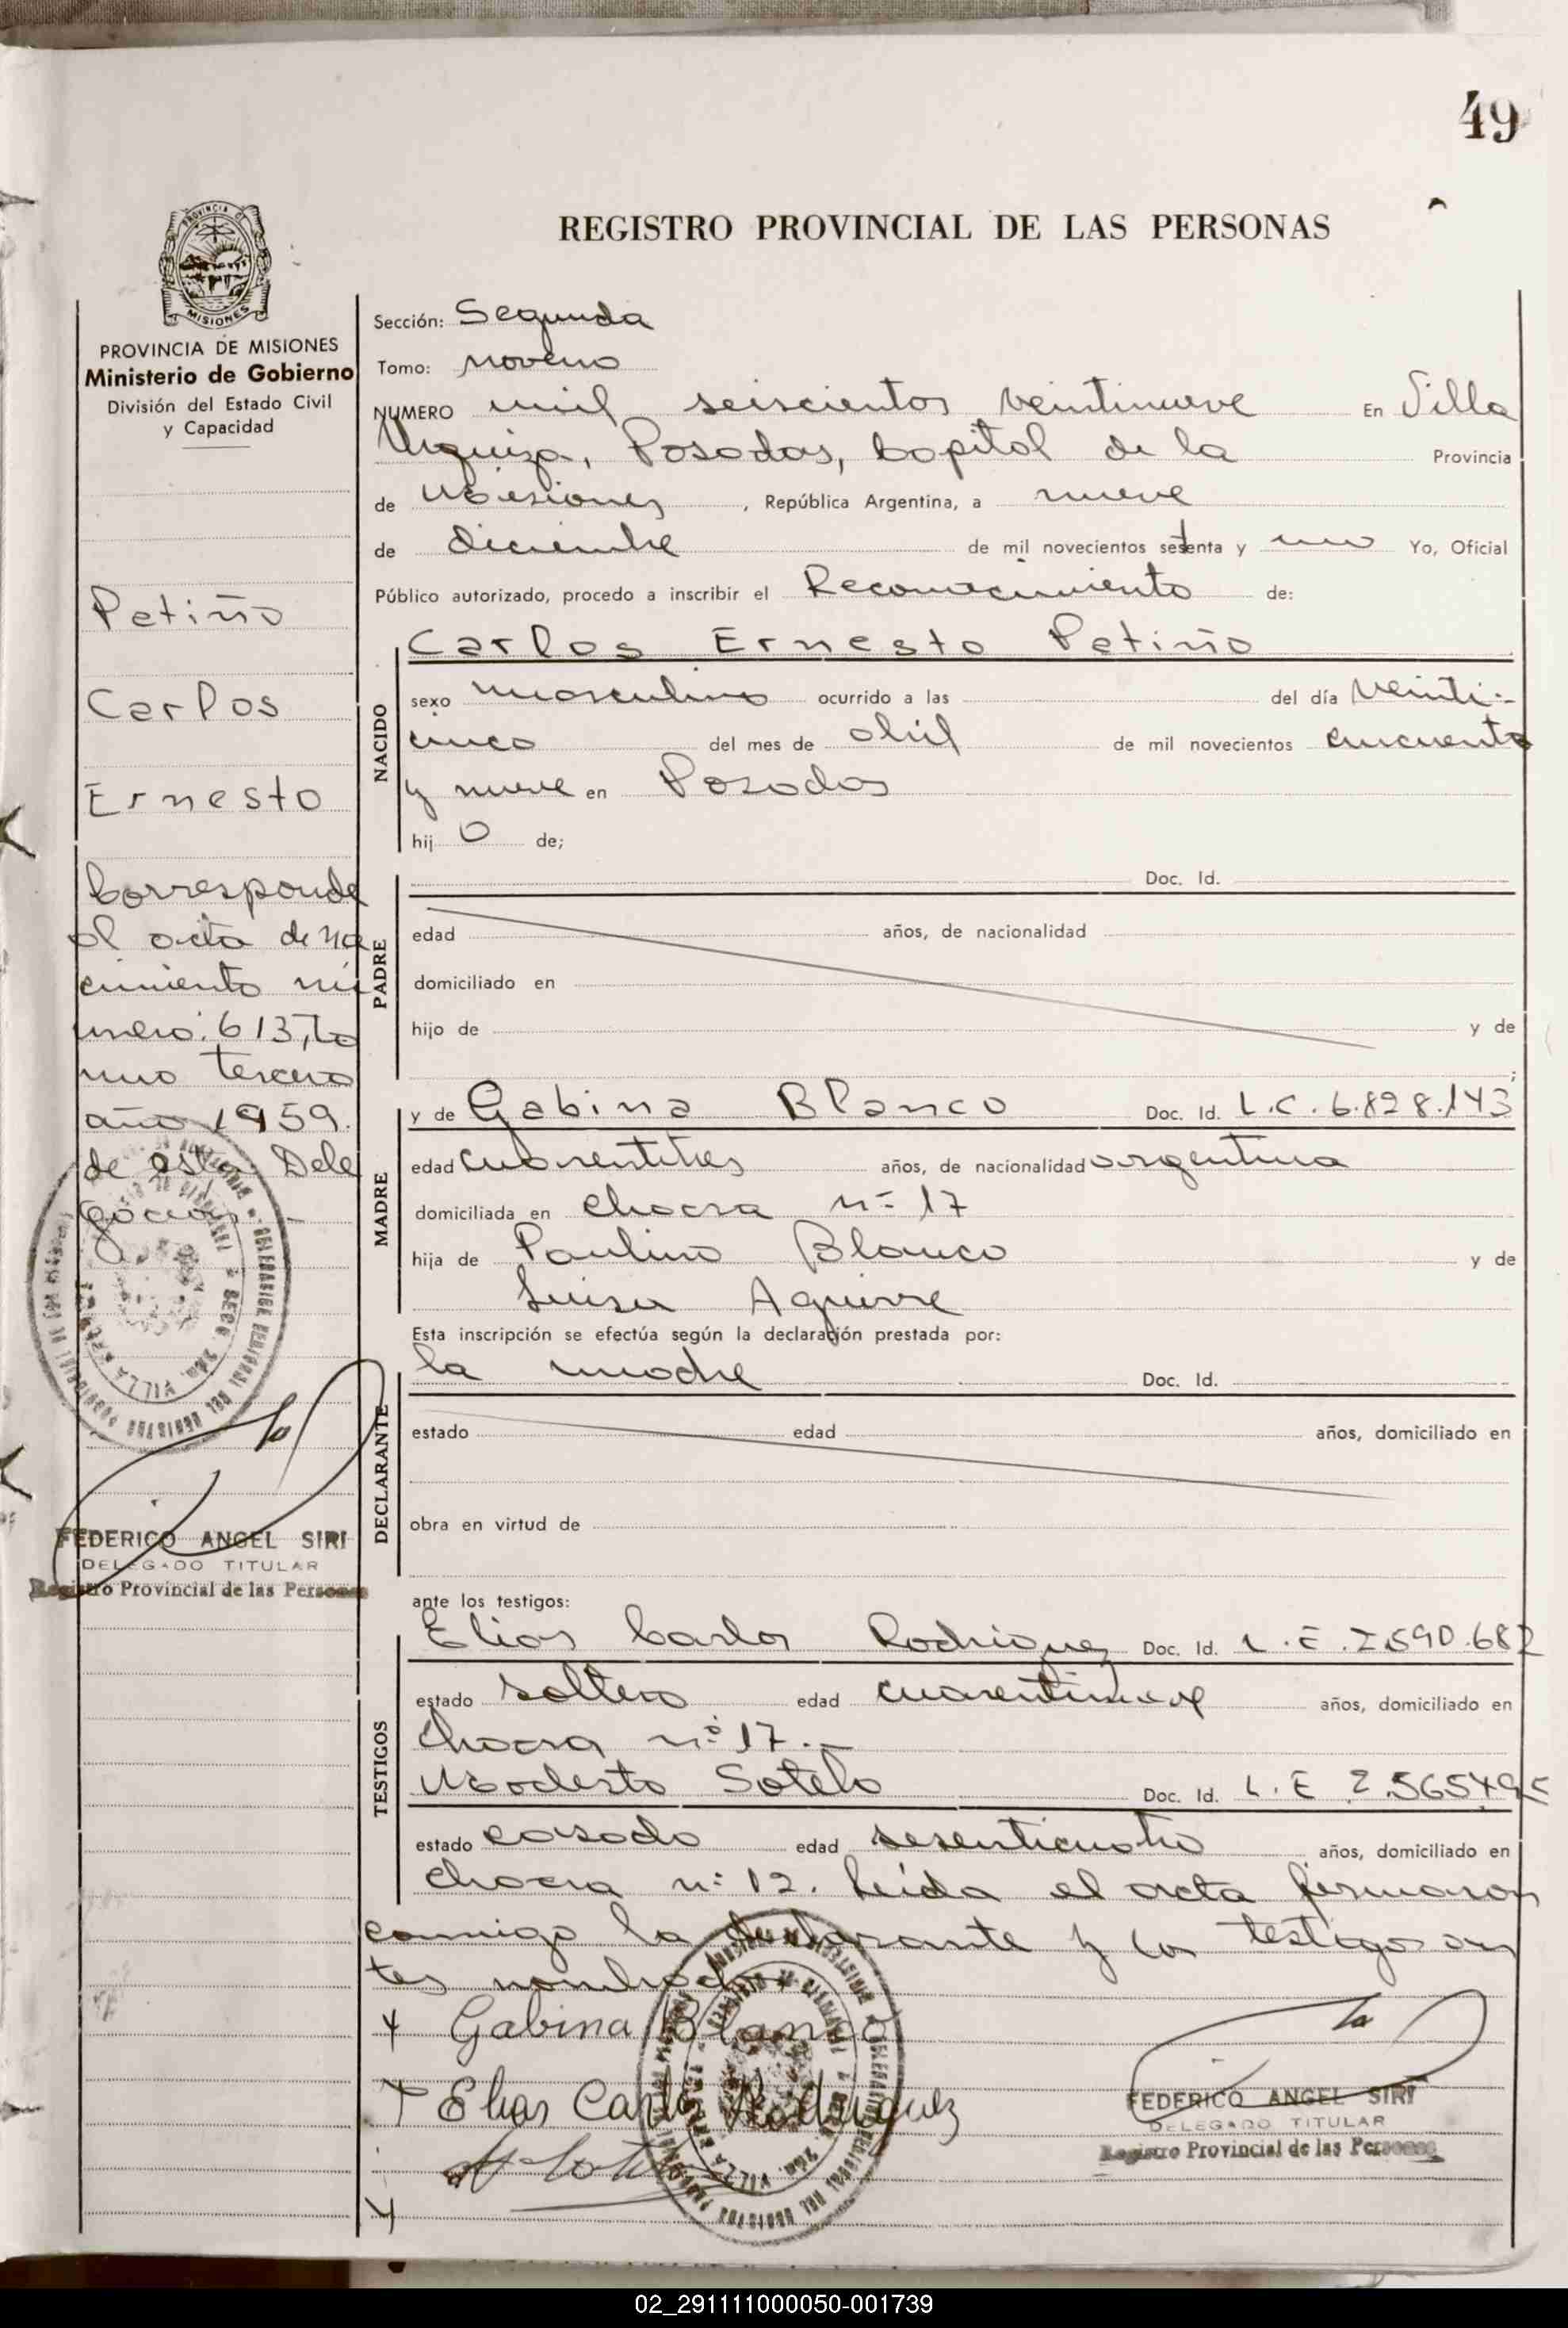 49
REGISTRO PROVINCIAL DE LAS PERSONAS
PROVINCIA DE MISIONES
PROVINCIA DE MISIONES
Ministerio de Gobierno
División del Estado Civil
y Capacidad
Petiño
Carlos
Ernesto
Corresponde
al acta de na
cimiento nú
mero: 613, to
mo tercero
año 1959.
de esta Dele
gación.-
FEDERICO ANGEL SIRI
DELEGADO TITULAR
Registro Provincial de las Personas
Sección: Segunda
Tomo: noveno
NUMERO mil seiscientos veintinueve En Villa
Urquiza, Posadas, Capital de la Provincia
de Misiones, República Argentina, a nueve
de diciembre de mil novecientos setenta y uno Yo, Oficial
Público autorizado, procedo a inscribir el Reconocimiento de:
NACIDO
Carlos Ernesto Petiño
sexo masculino ocurrido a las del día veinti-
cinco del mes de abril de mil novecientos cincuenta
y nueve en Posadas
hij o de;
PADRE
Doc. Id.
edad años, de nacionalidad
domiciliado en
hijo de y de
;
MADRE
y de Gabina Blanco Doc. Id. L.C. 6.828.143
edad cuarentitres años, de nacionalidad argentina
domiciliada en chacra n° 17
hija de Paulino Blanco y de
Luisa Aguirre
Esta inscripción se efectúa según la declaración prestada por:
DECLARANTE
la madre Doc. Id.
estado edad años, domiciliado en
obra en virtud de
ante los testigos:
TESTIGOS
Elias Carlos Rodriguez Doc. Id. L.E.
estado soltero edad cuarentinueve años, domiciliado en
Chacra n° 17.-
Modesto Sotelo Doc. Id. L.E
estado casado edad sesenticuatro años, domiciliado en
chacra n° 12. Leída el acta firmaron
conmigo la declarante y los testigos an
tes nombrados
Gabina Blanco
Elias Carlos Rodriguez
FEDERICO ANGEL SIRI
DELEGADO TITULAR
Registro Provincial de las Personas
02_291111000050-001739